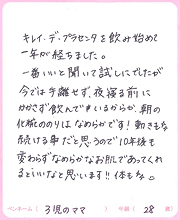 キレイ・デ・プラセンタを飲み始めて
一年が経ちました。
一番いいと聞いて試しにでしたが
今では手離せず、夜寝る前に
かかさず飲んでいるからか、朝の
化粧ののりはなめらかです！動きもな
続ける事だと思うので10年後も
変わらずなめらかなお肌であってくれ
るといいなと思います!!体もね
ペンネーム（ 3児のママ ） 年齢（ 28 歳）